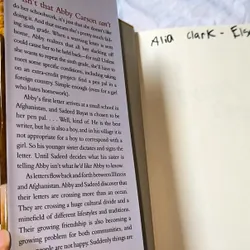 isn't that Abby Carson can't
do her schoolwork, it's just that she doesn't like
do it. And that means she's pretty much fail-
ing sixth grade. When a warning letter is sent
home, Abby realizes that all her slacking off
could cause her to be held back—for real! Unless
she wants to repeat the sixth grade, she'll have to
meet some specific conditions, including taking
on an extra-credit project: find a pen pal in a
foreign country. Simple enough (even for a girl
who hates homework).
Abby's first letter arrives at a small school in
Afghanistan, and Sadeed Bayat is chosen to be
her pen pal.... Well, kind of. He is the best
writer, but he is also a boy, and in his village it is
not appropriate for a boy to correspond with a
girl. So his younger sister dictates and signs the
letter. Until Sadeed decides what his sister is
telling Abby isn't what he'd like Abby to know.
As letters flow back and forth between Illinois
and Afghanistan, Abby and Sadeed discover that
their letters are crossing more than an ocean.
They are crossing a huge cultural divide and a
minefield of different lifestyles and traditions.
Their growing friendship is also becoming a
growing problem for both communities, and
people are not happy. Suddenly things are
Alia Clark -